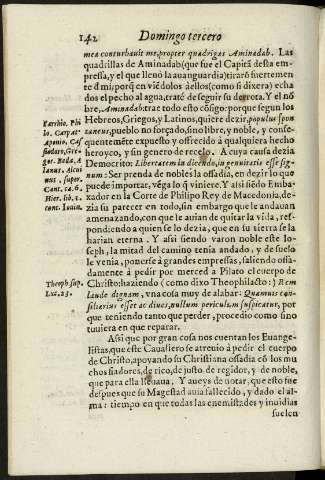 142 Domingo tercero
mea conturbauit me, propter quadrigas Aminadab. Las
quadrillas de Aminadab (que fue el Capitã desta em
pressa, y el que lleuò la auanguardia) tirarõ fuertemen
te đ mi; porq̃ en viẽdolos a ellos (como si dixera) echa
dos el pecho al agua, tratè de seguir su derrota. Y el nõ
bre, Aminadab, trae todo esto cõsigo: porque segun los
Hebreos, Griegos, y Latinos, quiere dezir, populus spon
taneus, pueblo no forçado, sino libre, y noble, y conse-
quentemẽte expuesto y offrecido à qualquiera hecho
heroyco, y sin genero de recelo. A cuya causa dezia
Democrito: Libertatem in dicẽdo, ingenuitatis esse sig-
num: Ser prenda de nobles la ossadia, en dezir lo que
puede importar, vẽga lo q̃ viniere. Y asi siẽdo Emba-
xador en la Corte de Philipo Rey de Macedonia, de-
zia su parecer en todo, sin embargo que le andauan
amenazando, con que le auian de quitar la vida, res-
pondiendo a quien se lo dezia, que en su tierra se la
harian eterna. Y asi siendo varon noble este Io-
seph, la mitad del camino tenia andado, y de suelo
le venia, ponerse à grandes empressas, saliendo ossa-
damente à pedir por merced a Pilato el cuerpo de
Christo: haziendo (como dixo Theophilacto:) Rem
laude dignam, vna cosa muy de alabar: Quamuis con-
siliarius esset ac diues, nullum periculum suspicatus, por
que teniendo tanto que perder, procedio como sino
tuuiera en que reparar.
Assi que por gran cosa nos cuentan los Euange-
listas, que este Cauallero se atreuio à pedir el cuerpo
de Christo, apoyando su Christiana ossadia cõ los mu
chos fiadores, de rico, de justo de regidor, y de noble,
que para ella lleuaua. Y aueys de notar, que esto fue
despues que su Magestad auia fallecido, y dado el al-
ma: tiempo en que todas las enemistades y inuidias
suelen
lo. Carpat.
Aponio, Cas
siodoro, Gre
gor. Beda, A
nus. super.
Cant. ca. 6.
Hier. lib. 1.
cont. Iouin.
Theoph. sup.
Luc. 23.